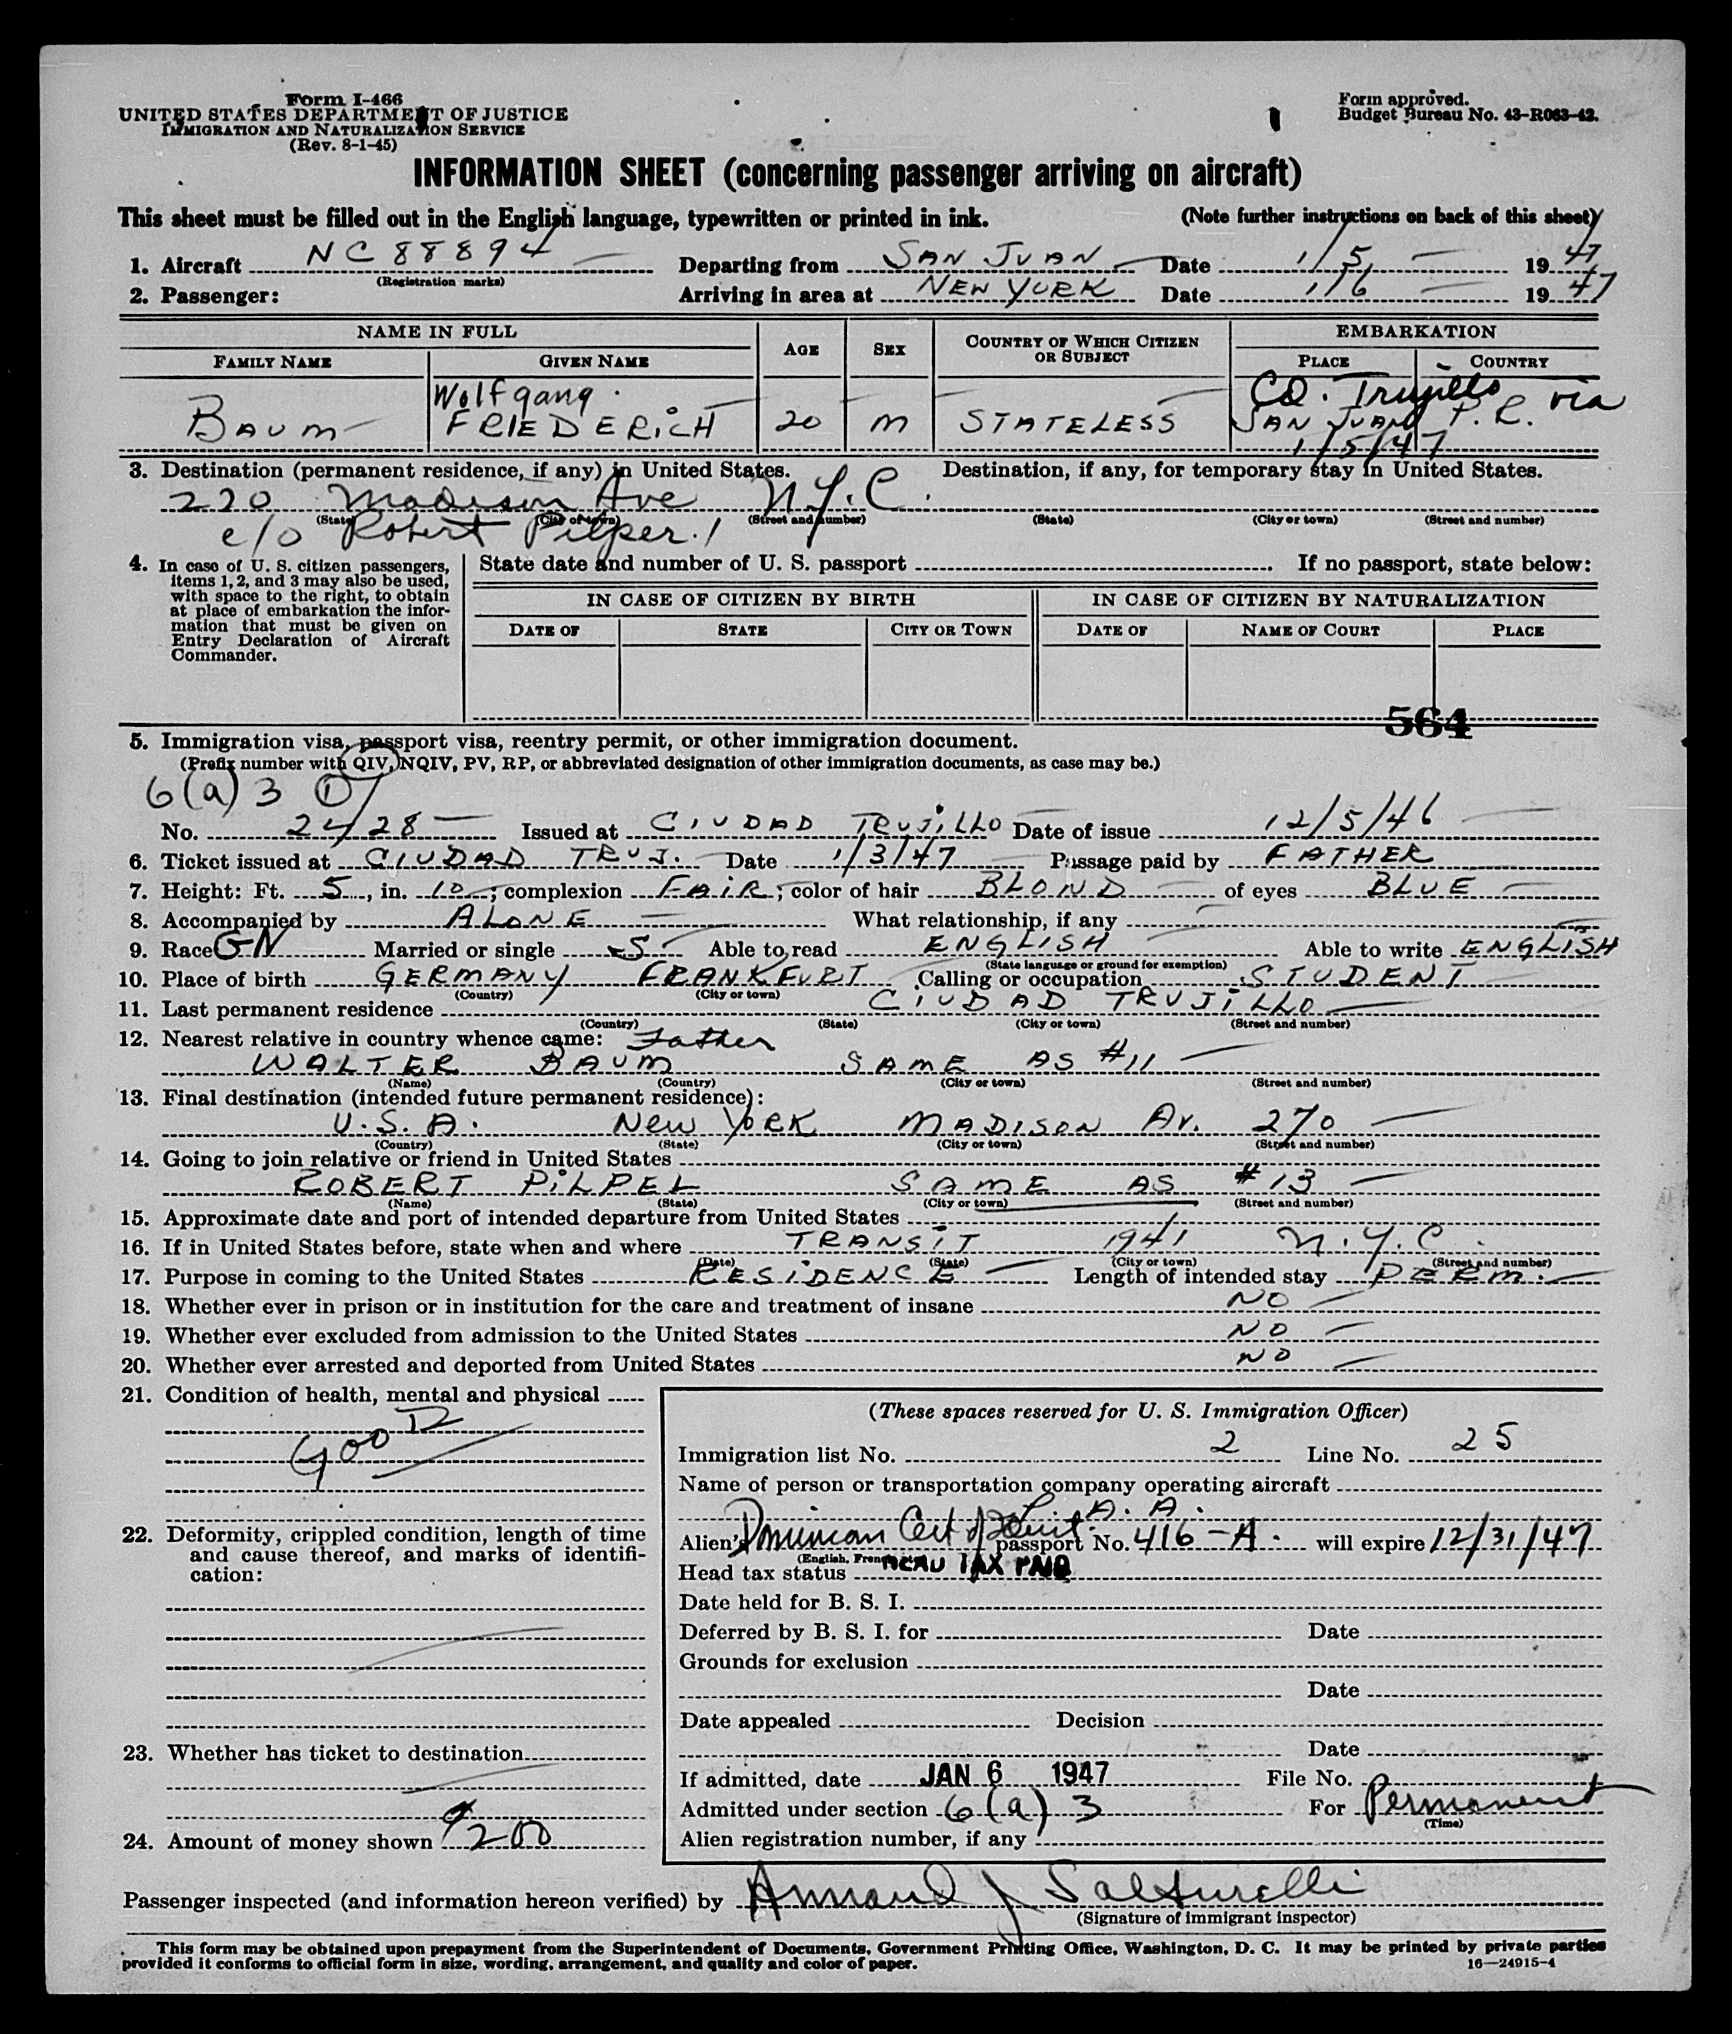 Form I-466
UNITED STATES DEPARTMENT OF JUSTICE
IMMIGRATION AND NATURALIZATION SERVICE
(Rev. 8-1-45)
Form approved.
Budget Bureau No. 43-R063-42.
INFORMATION SHEET (concerning passenger arriving on aircraft)
This sheet must be filled out in the English language, typewritten or printed in ink. (Note further instructions on back of this sheet)
1. Aircraft NC 88894 Departing from SAN JUAN Date 1/5 1947
(Registration marks)
2. Passenger: Arriving in area at NEW YORK Date 1/6 1947
NAME IN FULL AGE SEX COUNTRY OF WHICH CITIZEN OR SUBJECT EMBARKATION
FAMILY NAME GIVEN NAME PLACE COUNTRY
Wolfgang Cd. Trujillo via
BAUM FRIEDERICH 20 M STATELESS SAN JUAN P.R.
1/5/47
3. Destination (permanent residence, if any) in United States. Destination, if any, for temporary stay in United States.
270 Madison Ave N.Y.C.
(State) (City or town) (Street and number) (State) (City or town) (Street and number)
c/o Robert Pilper
4. In case of U. S. citizen passengers, items 1, 2, and 3 may also be used, with space to the right, to obtain at place of embarkation the information that must be given on Entry Declaration of Aircraft Commander.
State date and number of U. S. passport . If no passport, state below:
IN CASE OF CITIZEN BY BIRTH IN CASE OF CITIZEN BY NATURALIZATION
DATE OF STATE CITY OR TOWN DATE OF NAME OF COURT PLACE
564
5. Immigration visa, passport visa, reentry permit, or other immigration document.
(Prefix number with QIV, NQIV, PV, RP, or abbreviated designation of other immigration documents, as case may be.)
6(a) 3
No. 24/28 Issued at CIUDAD TRUJILLO Date of issue 12/5/46
6. Ticket issued at CIUDAD TRUJ. Date 1/3/47 Passage paid by FATHER
7. Height: Ft. 5, in. 10; complexion FAIR; color of hair BLOND of eyes BLUE
8. Accompanied by ALONE What relationship, if any
9. Race GN Married or single S Able to read ENGLISH Able to write ENGLISH
(State language or ground for exemption)
10. Place of birth GERMANY FRANKFURT Calling or occupation STUDENT
(Country) (City or town)
11. Last permanent residence CIUDAD TRUJILLO
(Country) (State) (City or town) (Street and number)
12. Nearest relative in country whence came: Father
WALTER BAUM SAME AS #11
(Name) (Country) (City or town) (Street and number)
13. Final destination (intended future permanent residence):
U.S.A. NEW YORK MADISON Av. 270
(Country) (State) (City or town) (Street and number)
14. Going to join relative or friend in United States
ROBERT PILPEL SAME AS #13
(Name) (State) (City or town) (Street and number)
15. Approximate date and port of intended departure from United States
16. If in United States before, state when and where TRANSIT 1941 N.Y.C.
(Date) (State) (City or town) (Street and number)
17. Purpose in coming to the United States RESIDENCE Length of intended stay PERM.
18. Whether ever in prison or in institution for the care and treatment of insane NO
19. Whether ever excluded from admission to the United States NO
20. Whether ever arrested and deported from United States NO
21. Condition of health, mental and physical
GOOD
22. Deformity, crippled condition, length of time and cause thereof, and marks of identification:
23. Whether has ticket to destination
24. Amount of money shown $200
(These spaces reserved for U. S. Immigration Officer)
Immigration list No. 2 Line No. 25
Name of person or transportation company operating aircraft
A. A.
Alien's Dominican Cert of Ident. passport No. 416-A. will expire 12/31/47
(English, French, etc.)
Head tax status HEAD TAX PAID
Date held for B. S. I.
Deferred by B. S. I. for Date
Grounds for exclusion
Date
Date appealed Decision
Date
If admitted, date JAN 6 1947 File No.
Admitted under section 6(a) 3 For Permanent
(Time)
Alien registration number, if any
Passenger inspected (and information hereon verified) by Armand J Salturelli
(Signature of immigrant inspector)
This form may be obtained upon prepayment from the Superintendent of Documents, Government Printing Office, Washington, D. C. It may be printed by private parties
provided it conforms to official form in size, wording, arrangement, and quality and color of paper.
16—24915-4